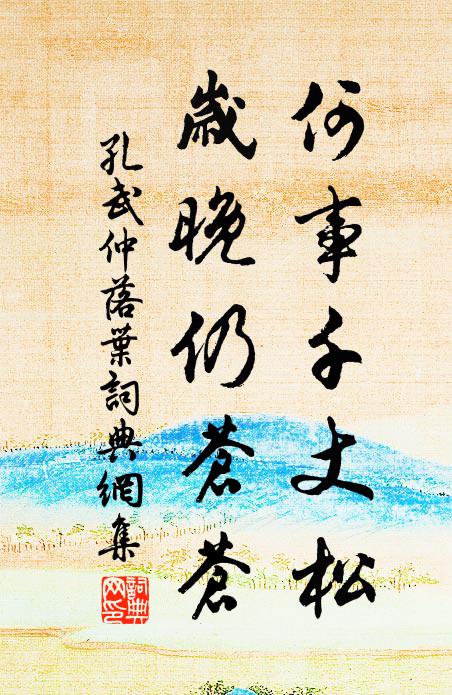 何事千丈松
歲晚仍蒼蒼
孔武仲落葉詞典網集